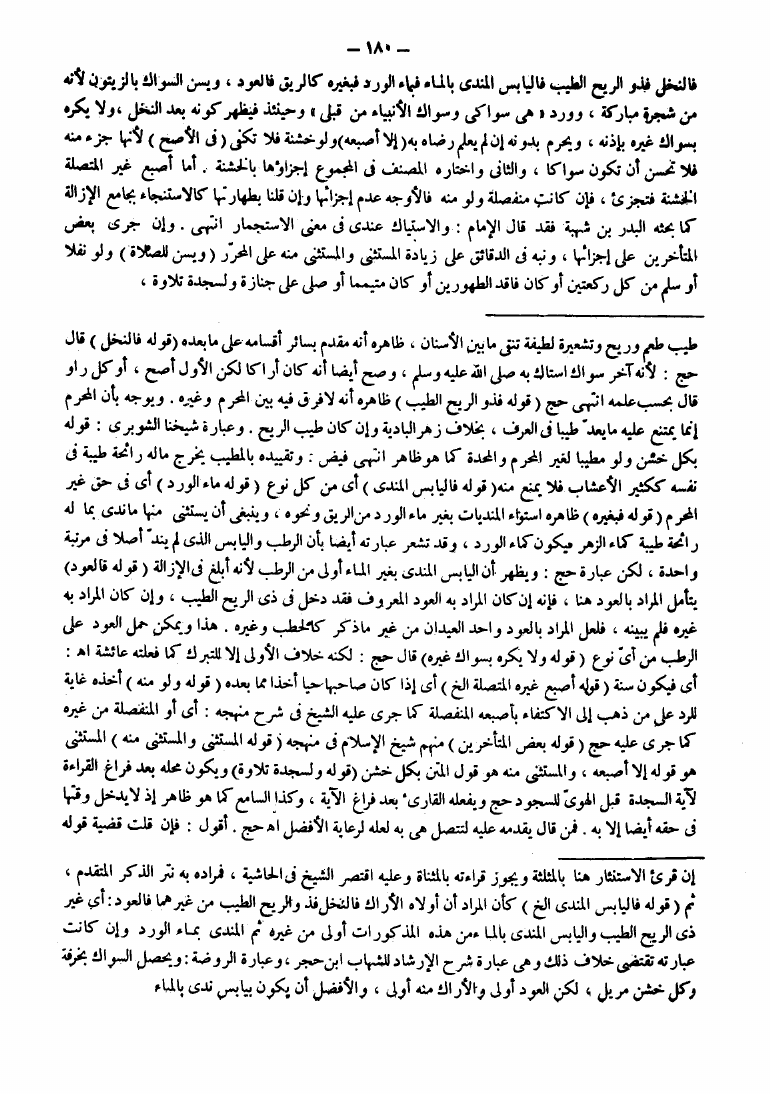 – ١٨٠ –
فالنخل فذو الريح الطيب فاليابس المندى بالماء فماء الورد فبغيره كالريق فالعود ، ويسن السواك بالزيتون لأنه
من شجرة مباركة ، وورد « هى سواكى وسواك الأنبياء من قبلى » وحينئذ فيظهر كونه بعد النخل ،ولا يكره
بسواك غيره بإذنه ، ويحرم بدونه إن لم يعلم رضاه به(إلا أصبعه)ولو خشنة فلا تكفى (فى الأصح) لأنها جزء منه
فلا تحسن أن تكون سواكا ، والثانى واختاره المصنف فى المجموع إجزاؤها بالخشنة . أما أصبع غير المتصلة
الخشنة فتجزئ ، فإن كانت منفصلة ولو منه فالأوجه عدم إجزائها وإن قلنا بطهارتها كالاستنجاء بجامع الإزالة
كما بحثه البدر بن شهبة فقد قال الإمام : والاستياك عندى فى معنى الاستجمار انتهى . وإن جرى بعض
المتأخرين على إجزائها ، ونبه فى الدقائق على زيادة المستثنى والمستثنى منه على المحرّر (ويسن للصلاة) ولو نفلا
أو سلم من كل ركعتين أو كان فاقد الطهورين أو كان متيمما أو صلى على جنازة ولسجدة تلاوة ،
طيب طعم وريح وتشعيرة لطيفة تنقى مابين الأسنان ، ظاهره أنه مقدم بسائر أقسامه على مابعده (قوله فالنخل) قال
حج : لأنه آخر سواك استاك به صلى الله عليه وسلم ، وصح أيضا أنه كان أراكا لكن الأول أصح ، أو كل راو
قال بحسب علمه انتهى حج (قوله فذو الريح الطيب) ظاهره أنه لافرق فيه بين المحرم وغيره . ويوجه بأن المحرم
إنما يمتنع عليه مايعدّ طيبا فى العرف ، بخلاف زهر البادية وإن كان طيب الريح . وعبارة شيخنا الشوبرى : قوله
بكل خشن ولو مطيبا لغير المحرم والمحدة كما هو ظاهر انتهى فيض : وتقييده بالمطيب يخرج ماله رائحة طيبة فى
نفسه ككثير الأعشاب فلا يمنع منه(قوله فاليابس المندى) أى من كل نوع (قوله ماء الورد) أى فى حق غير
المحرم (قوله فبغيره) ظاهره استواء المنديات بغير ماء الورد من الريق ونحوه ، وينبغى أن يستثنى منها ماندى بما له
رائحة طيبة كماء الزهر فيكون كماء الورد ، وقد تشعر عبارته أيضا بأن الرطب واليابس الذى لم يندّ أصلا فى مرتبة
واحدة ، لكن عبارة حج : ويظهر أن اليابس المندى بغير الماء أولى من الرطب لأنه أبلغ فى الإزالة (قوله فالعود)
يتأمل المراد بالعود هنا ، فإنه إن كان المراد به العود المعروف فقد دخل فى ذى الريح الطيب ، وإن كان المراد به
غيره فلم يبينه ، فلعل المراد بالعود واحد العيدان من غير ماذكر كالحطب وغيره . هذا ويمكن حمل العود على
الرطب من أىّ نوع (قوله ولا يكره بسواك غيره) قال حج : لكنه خلاف الأولى إلا للتبرك كما فعلته عائشة اه :
أى فيكون سنة (قوله أصبع غيره المتصلة الخ) أى إذا كان صاحبها حيا أخذا مما بعده (قوله ولو منه) أخذه غاية
للرد على من ذهب إلى الاكتفاء بأصبعه المنفصلة كما جرى عليه الشيخ فى شرح منهجه : أى أو المنفصلة من غيره
كما جرى عليه حج (قوله بعض المتأخرين) منهم شيخ الإسلام فى منهجه (قوله المستثنى والمستثنى منه) المستثنى
هو قوله إلا أصبعه ، والمستثنى منه هو قول المتن بكل خشن (قوله ولسجدة تلاوة) ويكون محله بعد فراغ القراءة
لآية السجدة قبل الهوىّ للسجود حج ويفعله القارئ بعد فراغ الآية ، وكذا السامع كما هو ظاهر إذ لايدخل وقتها
فى حقه أيضا إلا به . فمن قال يقدمه عليه لتتصل هى به لعله لرعاية الأفضل اه حج . أقول : فإن قلت قضية قوله
إن قرئ الاستنثار هنا بالمثلثة ويجوز قراءته بالمثناة وعليه اقتصر الشيخ فى الحاشية ، فمراده به نتر الذكر المتقدم ،
ثم (قوله فاليابس المندى الخ) كأن المراد أن أولاه الأراك فالنخل فذ والريح الطيب من غيرهما فالعود : أي غير
ذى الريح الطيب واليابس المندى بالماء من هذه المذكورات أولى من غيره ثم المندى بماء الورد وإن كانت
عبارته تقتضى خلاف ذلك وهى عبارة شرح الإرشاد للشهاب ابن حجر ، وعبارة الروضة : ويحصل السواك بخرقة
وكل خشن مريل ، لكن العود أولى والأراك منه أولى ، والأفضل أن يكون بيابس ندى بالماء